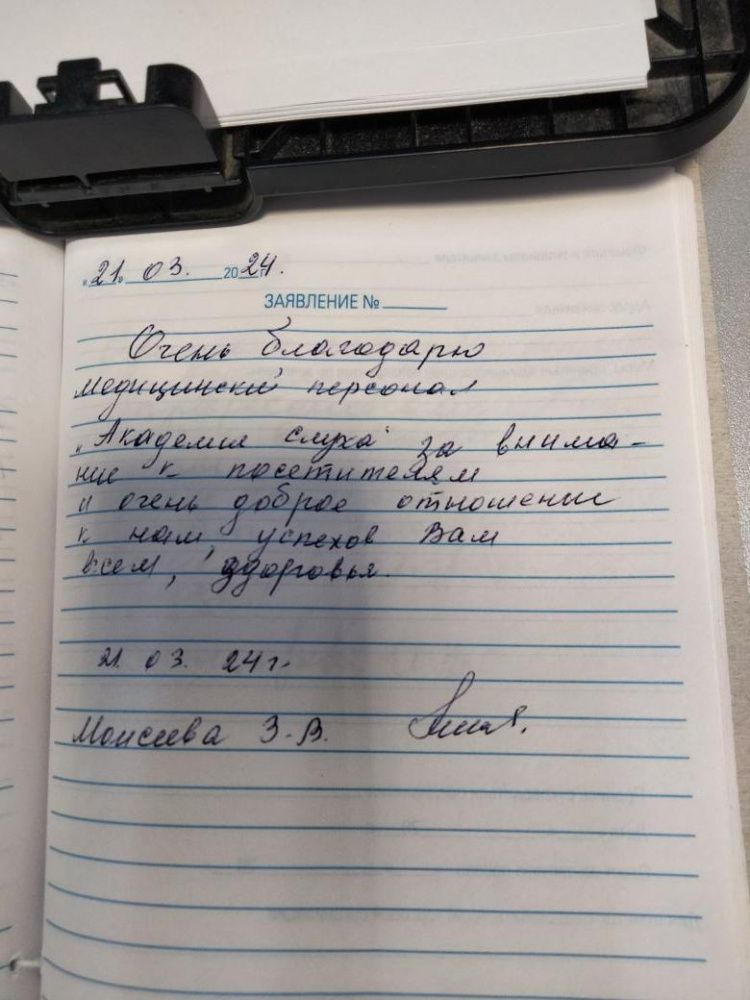 "21" 03. 2024г.
ЗАЯВЛЕНИЕ №
Очень благодарю
медицинский персонал
"Академия слуха" за внима-
ние к посетителям
и очень доброе отношение
к нам, успехов Вам
всем, здоровья.
21. 03. 24 г.
Моисеева З.В.